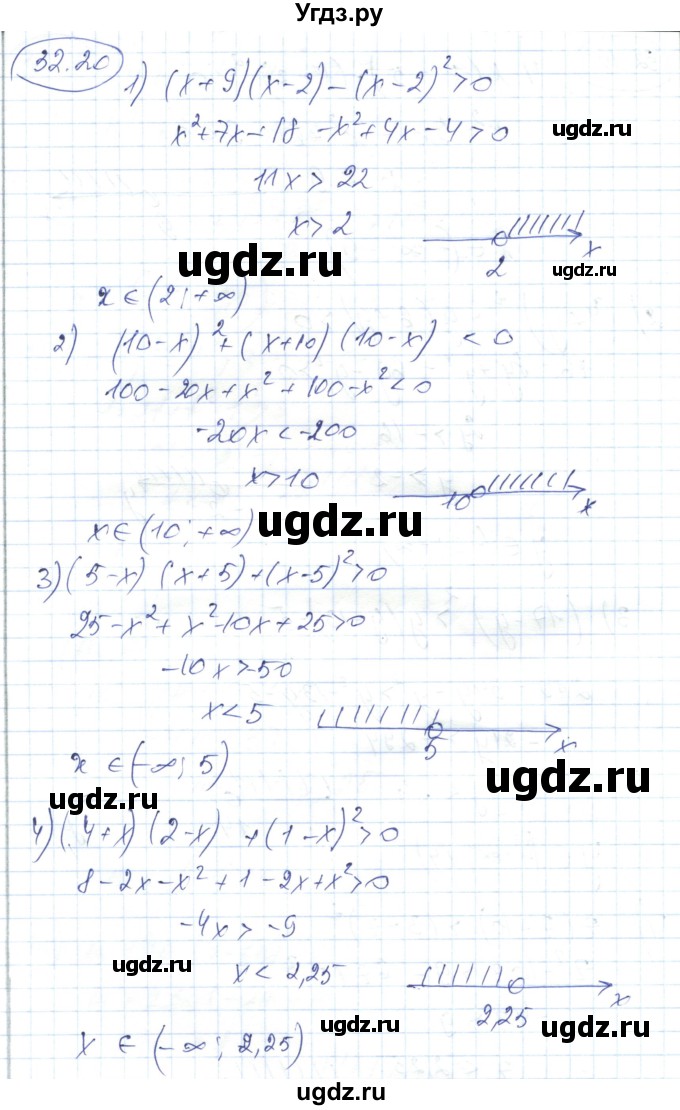 Угдз.ру
32.20
1) (x+9)(x-2)-(x-2)²>0
x²+7x-18 -x²+4x-4>0
ugdz.ru
11x > 22
x>2
ugdz.ru
2
x
ugdz.ru
x ∈ (2; +∞)
2) (10-x)²+(x+10)(10-x) < 0
100-20x+x²+100-x²<0
-20x<-200
x>10
10
x
x∈(10; +∞)
ugdz.ru
ugdz.ru
3) (5-x)(x+5)+(x-5)²>0
25-x²+x²-10x+25>0
-10x>-50
x<5
5
x
x ∈(-∞; 5)
ugdz.ru
ugdz.ru
4) (4+x)(2-x) +(1-x)²>0
8-2x-x²+1-2x+x²>0
-4x>-9
ugdz.ru
x < 2,25
2,25
x
ugdz.ru
ugdz.ru
x ∈ (-∞; 2,25)
ugdz.ru